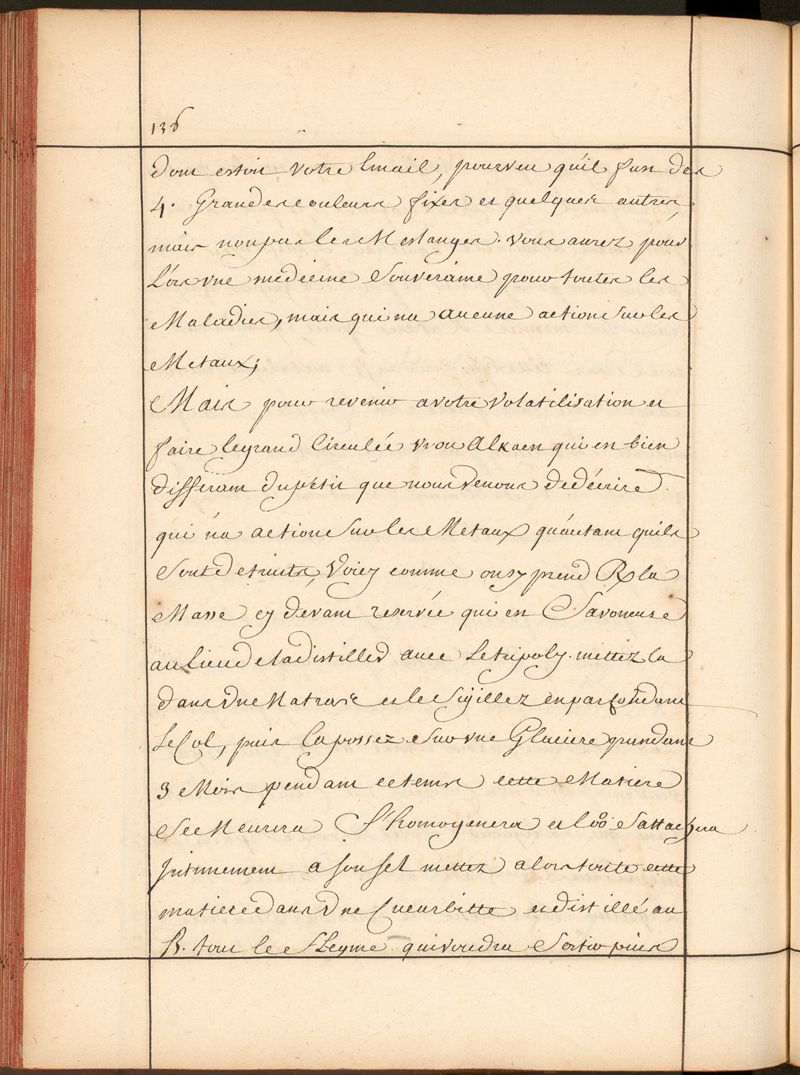 136
dont estoit votre Email, pourveu qu'il fut des
4. Grandes couleurs fixes et quelques autres
mais non par les Meslanges. vous aurez pour
L'or vne medecine Souveraine pour toutes les
Maladies, mais qui na aucune action Sur les
Metaux;
Mais pour revenir a votre volatilisation et
faire le grand Circulée vrou Alkaen qui en bien
differant du petit que nous venons de décrire
qui n'a action Sur les Metaux qu'autant quils
Sont detruits, Voicy comme on sy prend R la
Masse cy dévant reservée qui en Savoneuse
au Lieu de la distiller avec Le tripoly. mettez la
dans vne Matrase et le Sigillez en parfondant
Le Col, puis la possez Sur vne Glaciere pendant
3 Mois pendant ce tems cette Matiere
Se Meurira S'homogenera et Sattachera
Intimement a son sel mettez alors toute cette
matiere dans vne Cucurbitte et distillé au
B. tout le Flegme qui voudra Sortir puis